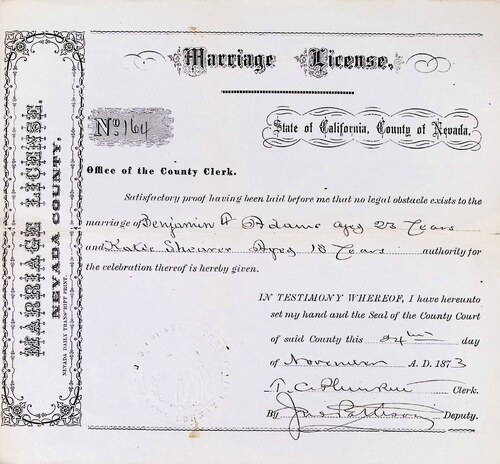 Marriage License,
MARRIAGE LICENSE.
NEVADA COUNTY.
NEVADA DAILY TRANSCRIPT PRINT.
No 164
State of California, County of Nevada.
Office of the County Clerk.
Satisfactory proof having been laid before me that no legal obstacle exists to the
marriage of Benjamin F Adams aged 23 Years
and Katie Shearer Aged 18 Years authority for
the celebration thereof is hereby given.
IN TESTIMONY WHEREOF, I have hereunto
set my hand and the Seal of the County Court
of said County this 24th day
of November A. D. 1873
T. C. Plunkett Clerk.
By Jno Pattison Deputy.